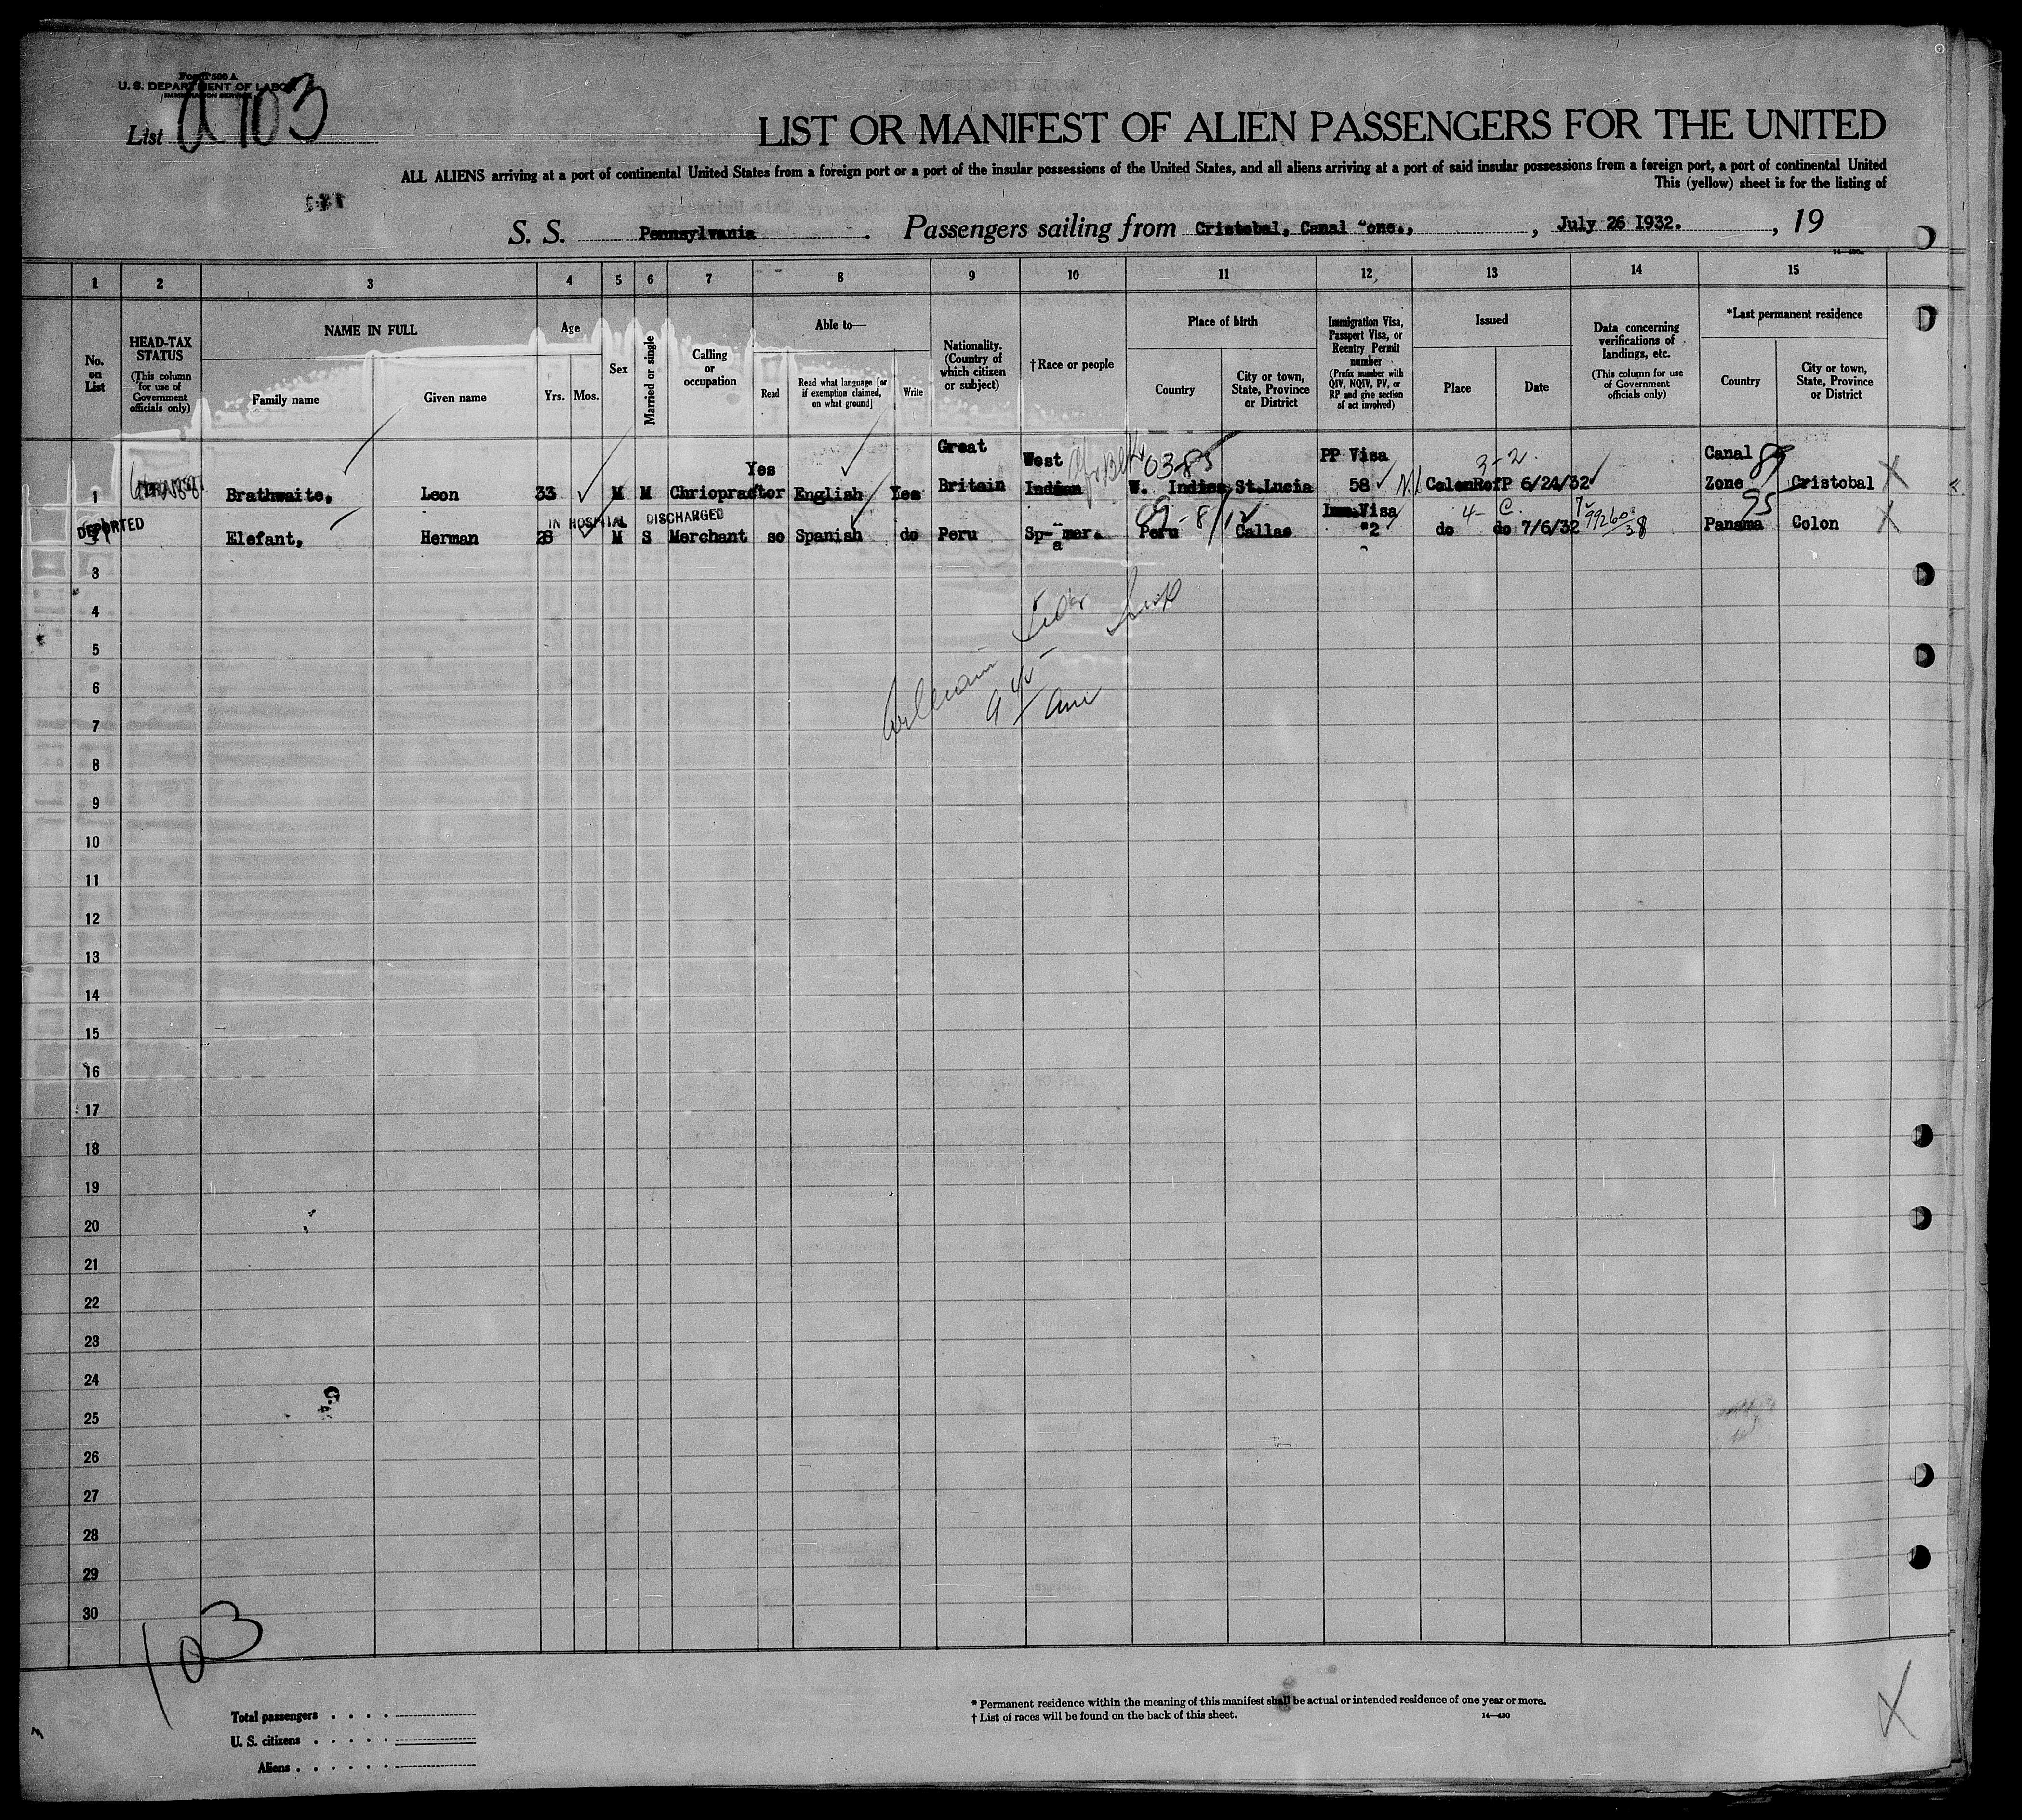 Form 500 A
U. S. DEPARTMENT OF LABOR
IMMIGRATION SERVICE
List a 103
LIST OR MANIFEST OF ALIEN PASSENGERS FOR THE UNITED
ALL ALIENS arriving at a port of continental United States from a foreign port or a port of the insular possessions of the United States, and all aliens arriving at a port of said insular possessions from a foreign port, a port of continental United
This (yellow) sheet is for the listing of
S. S. Pennsylvania. Passengers sailing from Cristobal, Canal "one., , July 26 1932. , 19
14—430a
1 2 3 4 5 6 7 8 9 10 11 12 13 14 15
No. on List
HEAD-TAX STATUS (This column for use of Government officials only)
NAME IN FULL
Family name
Given name
Age
Yrs. Mos.
Sex
Married or single
Calling or occupation
Able to—
Read
Read what language [or if exemption claimed, on what ground]
Write
Nationality. (Country of which citizen or subject)
†Race or people
Place of birth
Country
City or town, State, Province or District
Immigration Visa, Passport Visa, or Reentry Permit number (Prefix number with QIV, NQIV, PV, or RP and give section of act involved)
Issued
Place
Date
Data concerning verifications of landings, etc. (This column for use of Government officials only)
*Last permanent residence
Country
City or town, State, Province or District
1 Brathwaite, Leon 33 M M Chriopractor Yes English Yes Great Britain West Indian W. Indies St.Lucia PP Visa 58 ColonRefP 6/24/32 Canal Zone Cristobal X
03-85 3-2. 89
DEPORTED
IN HOSPITAL DISCHARGED
Elefant, Herman 28 M S Merchant se Spanish do Peru Sp-mer. Peru Callao Imm.Visa "2 do do 7/6/32 Panama Colon X
a
09-8/12 4- C. 95
3
4
5
6
7
8
9
10
11
12
13
14
15
16
17
18
19
20
21
22
23
24
25
26
27
28
29
30
9 45 am
103
Total passengers
U. S. citizens
Aliens
* Permanent residence within the meaning of this manifest shall be actual or intended residence of one year or more.
† List of races will be found on the back of this sheet.
14—430
X